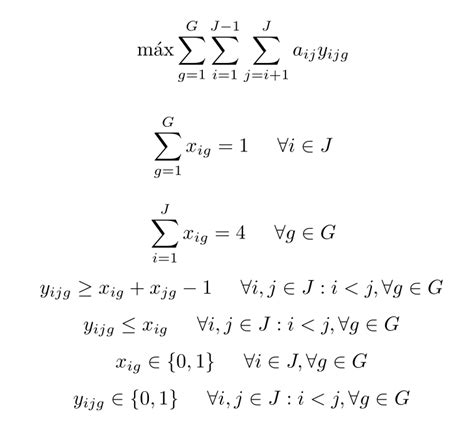 máx \sum_{g=1}^{G} \sum_{i=1}^{J-1} \sum_{j=i+1}^{J} a_{ij} y_{ijg}
\sum_{g=1}^{G} x_{ig} = 1 \quad ∀i ∈ J
\sum_{i=1}^{J} x_{ig} = 4 \quad ∀g ∈ G
y_{ijg} ≥ x_{ig} + x_{jg} − 1 \quad ∀i, j ∈ J : i < j, ∀g ∈ G
y_{ijg} ≤ x_{ig} \quad ∀i, j ∈ J : i < j, ∀g ∈ G
x_{ig} ∈ {0, 1} \quad ∀i ∈ J, ∀g ∈ G
y_{ijg} ∈ {0, 1} \quad ∀i, j ∈ J : i < j, ∀g ∈ G